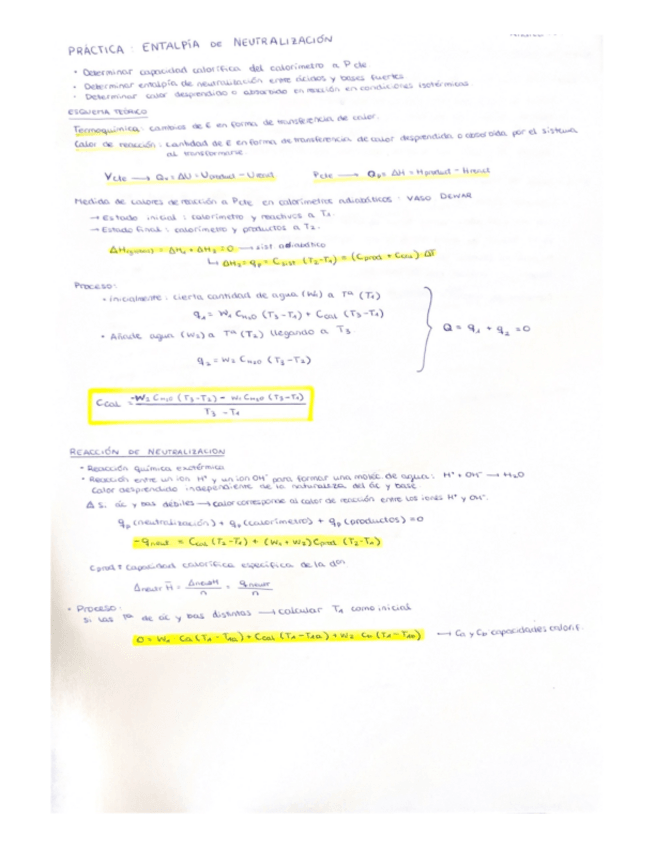 PRÁCTICA : ENTALPÍA DE NEUTRALIZACIÓN
• Determinar capacidad calorífica del calorímetro a P cte
• Determinar entalpía de neutralización entre ácidos y bases fuertes
• Determinar calor desprendido o absorbido en reacción en condiciones isotérmicas
ESQUEMA TEÓRICO
Termoquímica : cambios de E en forma de transferencia de calor.
Calor de reacción : cantidad de E en forma de transferencia de calor desprendida o absorbida por el sistema
al transformarse
Vcte → Qv = ΔU = Uproduct − Ureact Pcte → Qp = ΔH = Hproduct − Hreact
Medida de calores de reacción a Pcte en calorímetros adiabáticos : VASO DEWAR
→ Estado inicial : calorímetro y reactivos a T1.
→ Estado final : calorímetro y productos a T2.
ΔH = ΔH1 + ΔH2 = 0 → sist adiabático
↳ ΔH2 = qp = Csist (T2−T1) = (Cprod + Ccal) ΔT
Proceso:
• Inicialmente : cierta cantidad de agua (W1) a Tª (T1)
q1 = W1 CH2O (T3−T1) + Ccal (T3−T1)
• Añade agua (W2) a Tª (T2) llegando a T3.
Q = q1 + q2 = 0
q2 = W2 CH2O (T3−T2)
Ccal = -W2 CH2O (T3−T2) − W1 CH2O (T3−T1) / T3 − T1
REACCIÓN DE NEUTRALIZACIÓN
• Reacción química exotérmica
• Reacción entre un ion H⁺ y un ion OH⁻ para formar una moléc de agua : H⁺ + OH⁻ → H2O
Calor desprendido independiente de la naturaleza del ác y base
Δ Si ác y bas débiles → calor corresponde al calor de reacción entre los iones H⁺ y OH⁻.
qp (neutralización) + qp (calorímetro) + qp (productos) = 0
−qneut = Ccal (T2−T1) + (W1 + W2) Cprod (T2−T1)
Cprod = capacidad calorífica específica de la dón
Δneutr H̄ = ΔneutrH / n = qneutr / n
• Proceso:
Si las Tª de ác y bas distintas → calcular T1 como inicial
0 = W1 Ca (T1 − T1a) + Ccal (T1 − T1a) + W2 Cb (T1 − T1b) → Ca y Cb capacidades calorif.